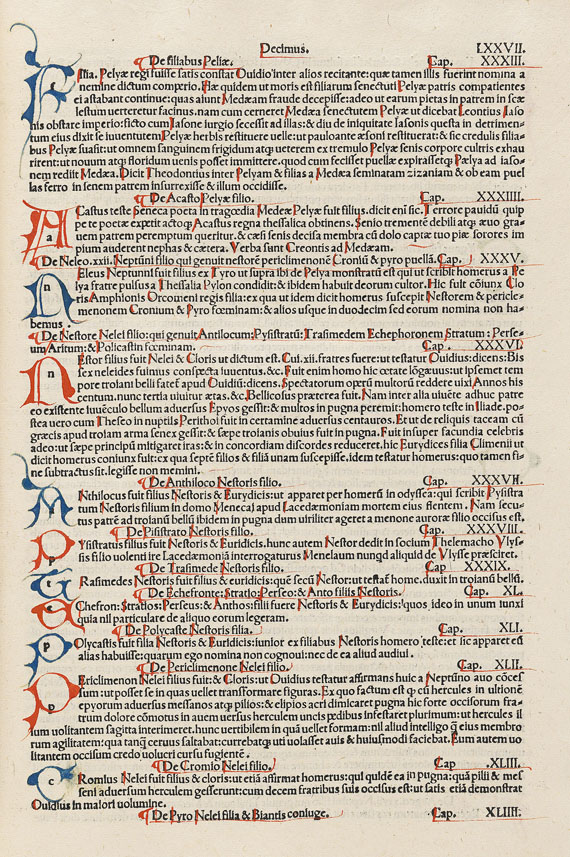 Decimus. LXXVII.
De filiabus Peliæ. Cap. XXXIII.
Filia. Pelyæ regi fuisse satis constat Ouidio inter alios recitante: quæ tamen illis fuerint nomina a
nemine dictum comperio. Hæ quidem ut moris est filiarum senectuti Pelyæ patris compatientes
ei astabant continue: quas aiunt Medæam fraude decepisse: adeo ut earum pietas in patrem in scæ
lestum uerteretur facinus. nam cum cerneret Medæa senectutem Pelyæ ut dicebat Leontius Iaso
nis obstare imperio: ficto cum Iasone iurgio secessit ad illas: & diu de iniquitate Iasonis questa in detrimen
tum eius dixit se iuuentutem Pelyæ herbis restituere uelle: ut paulo ante æsoni restituerat: & sic credulis filia-
bus Pelyæ suasit: ut omnem sanguinem frigidum atque ueterem ex tremulo Pelyæ senis corpore cultris exhau
rirent: ut nouum atque floridum uenis posset immittere. quod cum fecisset puellæ expirassetque Pælya ad iaso-
nem rediit Medæa. Dicit Theodontius inter Pelyam & filias a Medæa seminatam zizaniam & ob eam puel
las ferro in senem patrem insurrexisse & illum occidisse.
De Acasto Pelyæ filio. Cap. XXXIIII.
ACastus teste Seneca poeta in tragœdia Medeæ Pelyæ fuit filius. dicit enī sic. Terrore pauidū quip
pe te poetæ expetit actoque Acastus regna thessalica obtinens. Senio trementē debili atque æuo gra-
uem patrem peremptum queritur. & cæsi senis decisa membra cū dolo captæ tuo piæ sorores im
pium auderent nephas & cætera. Verba sunt Creontis ad Medæam.
De Neleo. xxii. Neptūni filio qui genuit nestorē periclimenonē Croniū & pyro puellā. Cap. XXXV.
NEleus Neptunni fuit filius ex Tyro ut supra ibi de Pelya monstratū est qui ut scribit homerus a Pe
lya fratre pulsus a Thessalia Pylon condidit: & ibidem habuit deorum cultor. Hic fuit cōiunx Clo
ris Amphionis Orcomeni regis filia: ex qua ut idem dicit homerus suscepit Nestorem & pericle-
menonem Cronium & Pyro fœminam: & alios usque in duodecim sed eorum nomina non ha-
bemus.
De Nestore Nelei filio: qui genuit Antilocum: Pysistratū: Trasimedem Echephoronem Stratum: Perse-
um Aritum: & Policastin fœminam. Cap. XXXVI.
NEstor filius fuit Nelei & Cloris ut dictum est. Cui. xii. fratres fuere: ut testatur Ouidius: dicens: Bis
sex neleides fuimus conspecta iuuentus. &c. Fuit enim homo hic œtate lōgæuus: ut ipsemet tem
pore troiani belli fatet̄ apud Ouidiū: dicens. Spectatorum operū multorū reddere uixi Annos his
centum. nunc tertia uiuitur ætas. &c. Bellicosus præterea fuit. Nam inter alia uiuēte adhuc patre
eo existente iuuēculo bellum aduersus Epyos gessit: & multos in pugna peremit: homero teste in Iliade. po-
stea uero cum Theseo in nuptiis Perithoi fuit in certamine aduersus centauros. Et ut de reliquis taceam cū
græcis apud troiam arma senex gessit: & sæpe troianis obuius fuit in pugna. Fuit insuper facundia celebris
adeo: ut sæpe principū mitigaret iras: & in concordiam discordes reduceret. hic Eurydices filia Climenii ut
dicit homerus coniunx fuit: ex qua septē filios & filiā unam suscepisse. idem testatur homerus: quo tamen fi-
ne subtractus sit. legisse non memini.
De Anthiloco Nestoris filio. Cap. XXXVII.
ANthilocus fuit filius Nestoris & Eurydicis: ut apparet per homerū in odyssea: qui scribit Pysistra
tum Nestoris filium in domo Menecaj apud Lacedæmoniam mortem eius flentem. Nam secu-
tus patrē ad troianū bellū ibidem in pugna dum uiriliter ageret a menone auroræ filio occisus est.
De Pisistrato Nestoris filio. Cap. XXXVIII.
PYsistratus filius fuit Nestoris & Euridicis. hunc autem Nestor dedit in socium Thelemacho Vlys-
sis filio uolenti ire Lacedæmoniā interrogaturus Menelaum nunqd aliquid de Vlysse præsciret.
De Trasimede Nestoris filio. Cap. XXXIX.
TRasimedes Nestoris fuit filius & euridicis: quē secū Nestor: ut testat̄ home. duxit in troianū bellū.
De Echefronte: Stratio: Perseo: & Anto filiis Nestoris. Cap. XL.
EChefron: Stratios: Perseus: & Anthos: filii fuere Nestoris & Eurydicis: quos ideo in unum iunxi
quia nil particulare de aliquo eorum legeram.
De Polycaste Nestoris filia. Cap. XLI.
POlycastis fuit filia Nestoris & Euridicis: iunior ex filiabus Nestoris homero teste: et sic apparet eū
alias habuisse: quarum ego nomina non cognoui: nec de ea aliud audiui.
De Periclimenone Nelei filio. Cap. XLII.
PEriclimenon Nelei filius fuit: & Cloris: ut Ouidius testatur affirmans huic a Neptūno auo cōces
sum: ut posset se in quas uellet transformare figuras. Ex quo factum est que cū hercules in ultionē
epyorum aduersus messanos atque pilios: & elipios acri dimicaret pugna hic forte occisorum fra-
trum dolore cōmotus in auem uersus herculem uncis pedibus infestaret plurimum: ut hercules il
lum uolitantem sagitta interimeret. hunc uertibilem in quā uellet formam: nil aliud intelligo que eius membro
rum agilitatem: qua tanque ceruus saltabat: currebatque uti uolasset auis & huiusmodi faciebat. Eum autem uo
litantem occisum credo uolucri cursu fugientē.
De Cromio Nelei filio. Cap. XLIII.
CRomius Nelei fuit filius & cloris: ut etiā affirmat homerus: qui quidē ea in pugna: quā pilii & mes
seni aduersum herculem gesserunt: cum decem fratribus suis occisus est: ut satis etiā demonstrat
Ouidius in maiori uolumine.
De Pyro Nelei filia & Biantis coniuge. Cap. XLIIII.